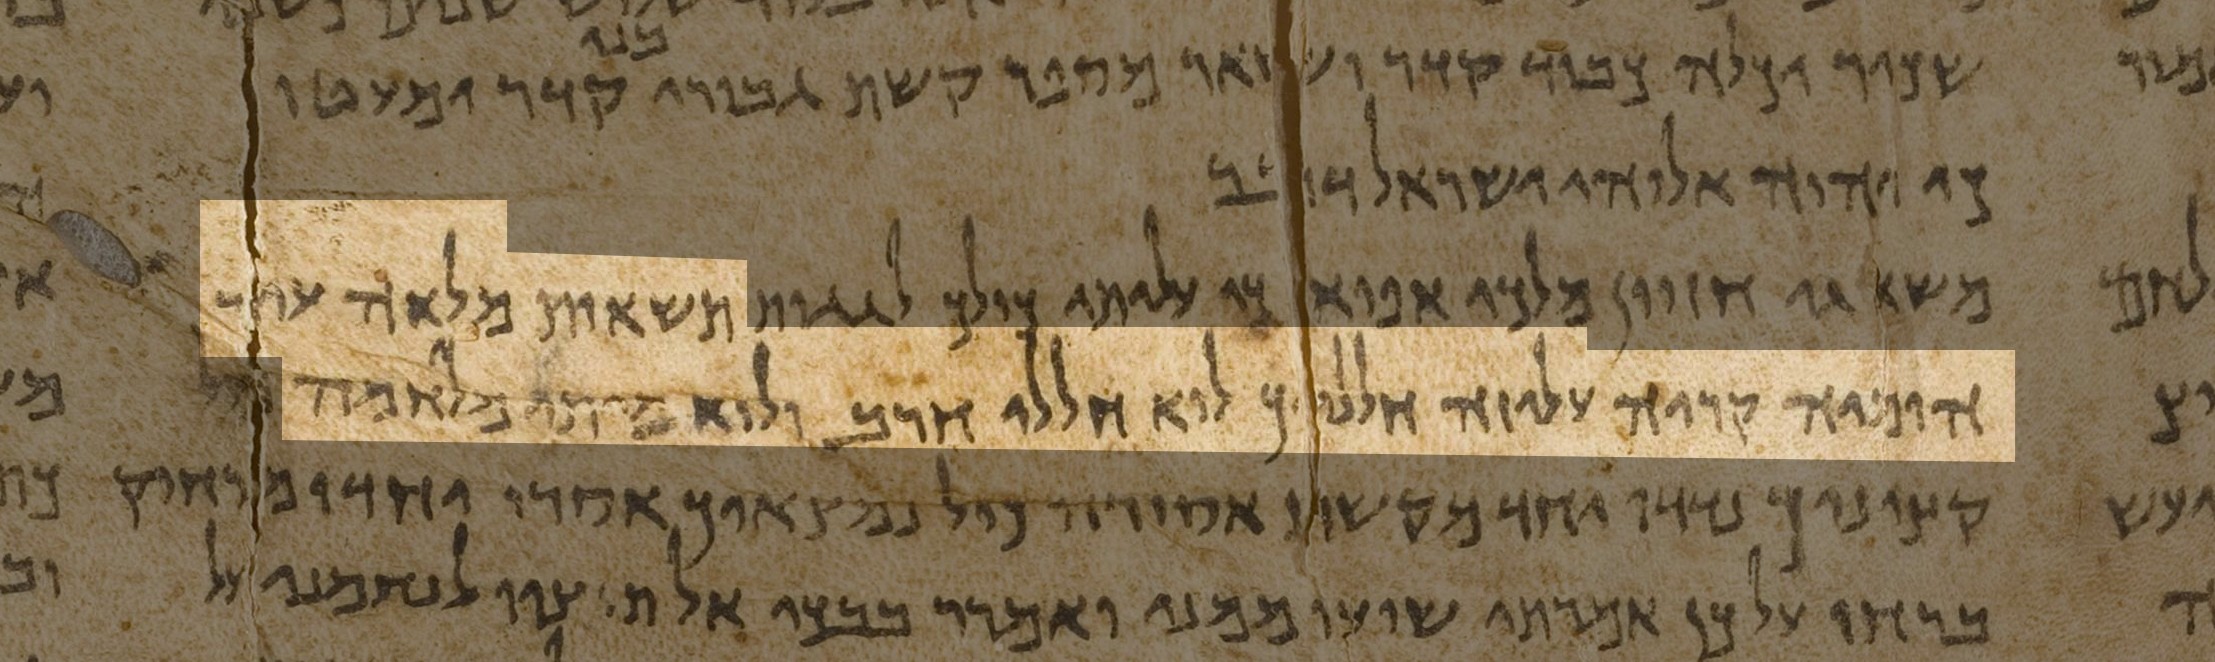 שכיר וכלה כבוד קדר ושאר מספר קשת גבורי בני קדר ימעטו
כי יהוה אלוהי ישראל דיבר
משא גי חזיון מלכי אפוא כי עליתי כולך לגגות תשאות מלאה עיר
הומיה קריה עליזה חלליך לוא חללי חרב ולוא מיתי מלחמה כול
קציניך נדדו יחד מקשת אסורה כול נמצאיך אסרו יחדיו מרחוק
ברחו על כן אמרתי שועו ממני ואמרר בבכי אל לנחמני על